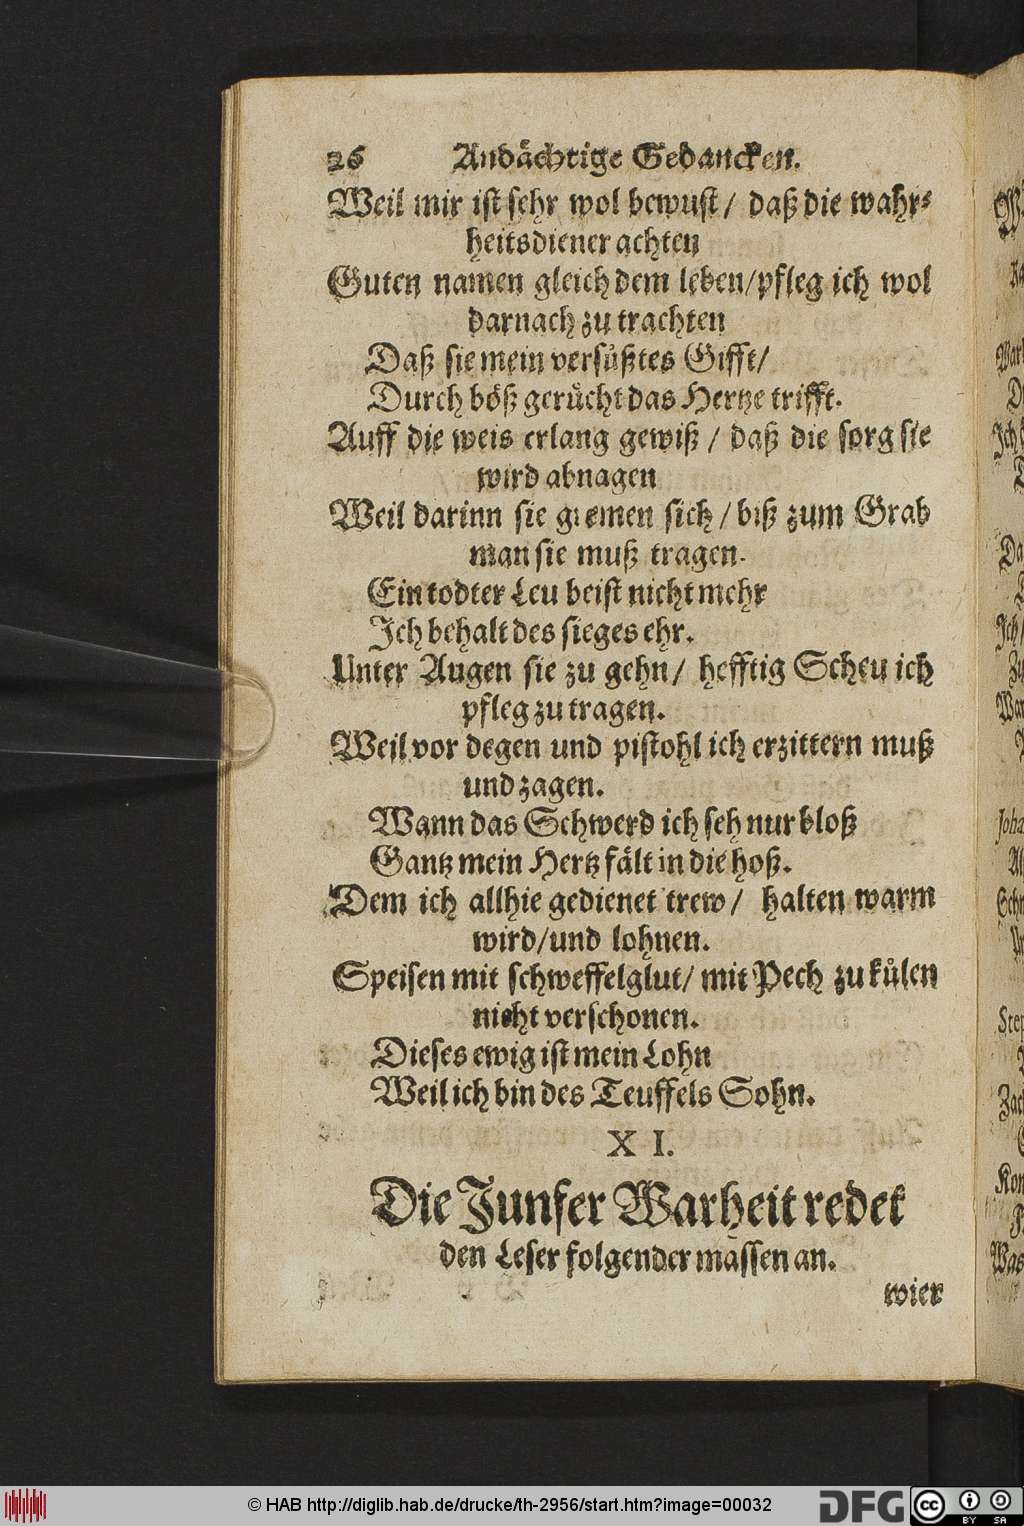 26 Andächtige Gedancken.
Weil mir ist sehr wol bewust / daß die wahr⸗
heitsdiener achten
Guten namen gleich dem leben/pfleg ich wol
darnach zu trachten
Daß sie mein versüßtes Gifft/
Durch böß gerücht das Hertze trifft.
Auff die weis erlang gewiß / daß die sorg sie
wird abnagen
Weil darinn sie gremen sich / biß zum Grab
man sie muß tragen.
Ein todter Leu beist nicht mehr
Ich behalt des sieges ehr.
Unter Augen sie zu gehn / hefftig Scheu ich
pfleg zu tragen.
Weil vor degen und pistohl ich erzittern muß
und zagen.
Wann das Schwerd ich seh nur bloß
Gantz mein Hertz fält in die hoß.
Dem ich allhie gedienet trew / halten warm
wird/und lohnen.
Speisen mit schweffelglut/ mit Pech zu külen
nicht verschonen.
Dieses ewig ist mein Lohn
Weil ich bin des Teuffels Sohn.
XI.
Die Junfer Warheit redet
den Leser folgender massen an.
wier
© HAB http://diglib.hab.de/drucke/th-2956/start.htm?image=00032
DFG
cc BY SA